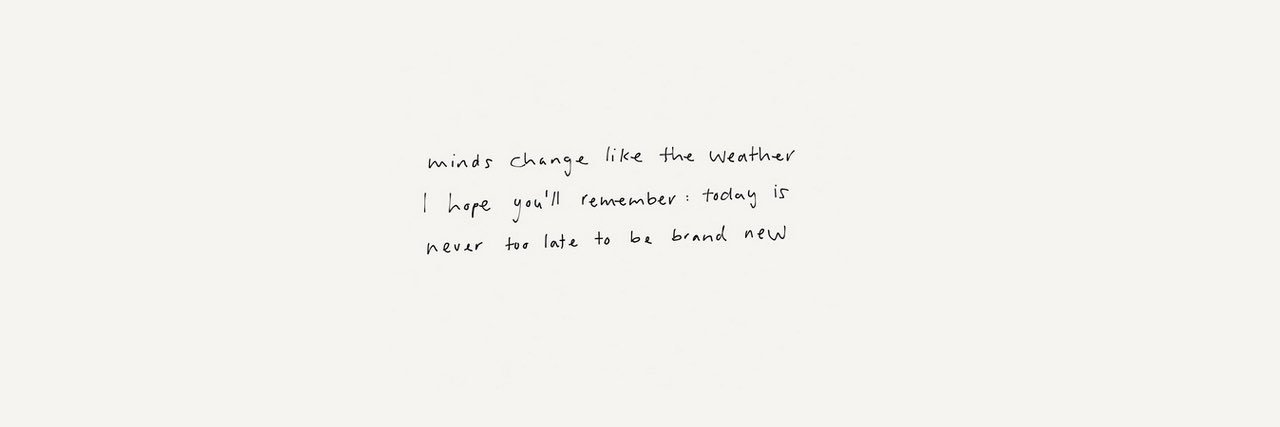 minds change like the weather
I hope you'll remember: today is
never too late to be brand new